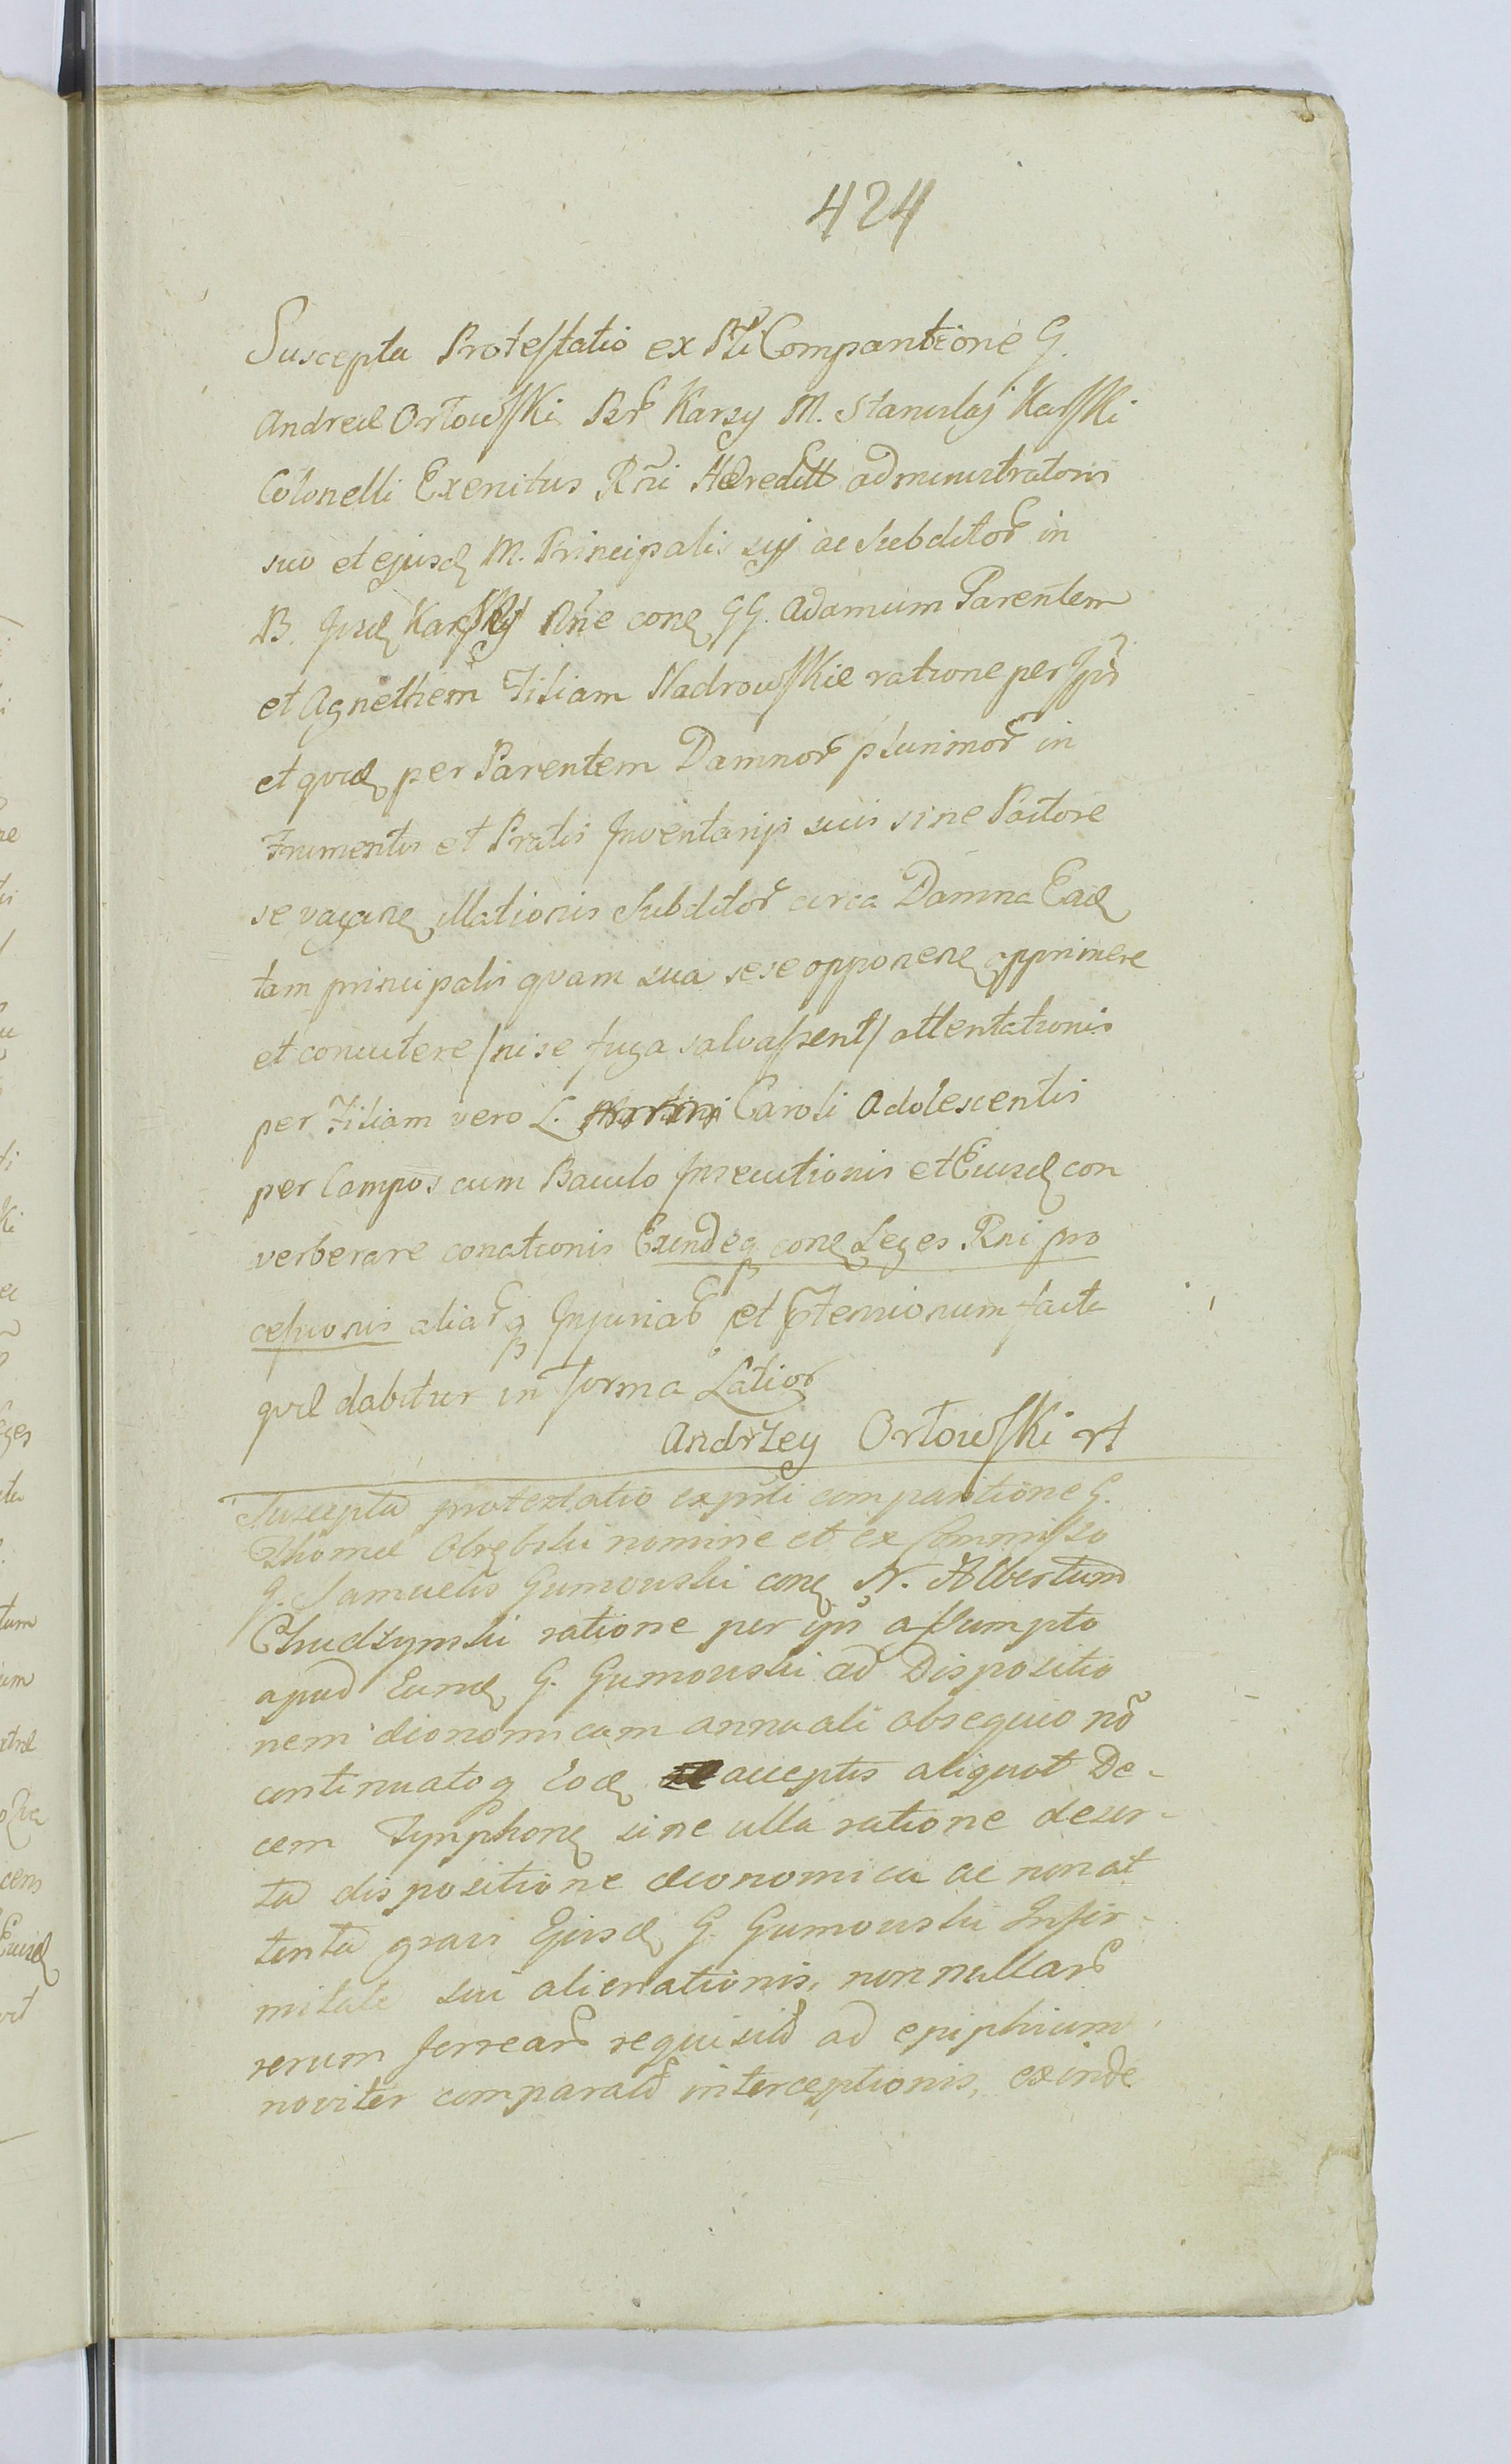 424
Suscepta Protestatio ex Pñti Comparitione G.
Andreæ Orłowski Bor Karzy M. Stanislaj Karski
Colonelli Exercitus Rñi Hæreditt administratoris
suo et ejusđ M. Principalis suj ac Subditor in
B. Ipsæ Karski ñne conq GG. Adamum Parentem
et Agnethem Filiam Nadrowskie ratione per Ips̃
et quid per Parentem Damnor plurimor in
Frumentis et Pratis Inventarijs suis sine Pastore
se vagane illationis Subditor circa Damna Ead
tam principalis quam sua sese opponene opprimere
et concutere /ni se fuga salvassent/ attentationis
per Filiam vero L. Caroli Adolescentis
per Campos cum Baculo Insecutionis et Eiusd con
verberare conationis Exindeq conq Leges Rni pro
cessionis aliarq Injuriar et Ptensionum facta
quæ dabitur in forma Latior
Andrzey Orłowski rt
Suscepta protestatio ex pñti comparitione G.
Thomæ Obrębski nomine et ex Commisso
G. Samuelis Gumowski conq N. Albertum
Chudzynski ratione per ips̃ assumpto
apud Eund G. Gumowski ad Dispositio
nem œconomicam annuali obsequio nõ
continuatoq Eod acceptis aliquot De-
cem Tymphonq sine ulla ratione deser-
ta dispositione œconomica ac non at
tenta gravi Ejusd G. Gumowski Infir-
mitate sui alienationis, non nullar
rerum ferrear requisit ad epiphium
noviter comparat interceptionis, exinde